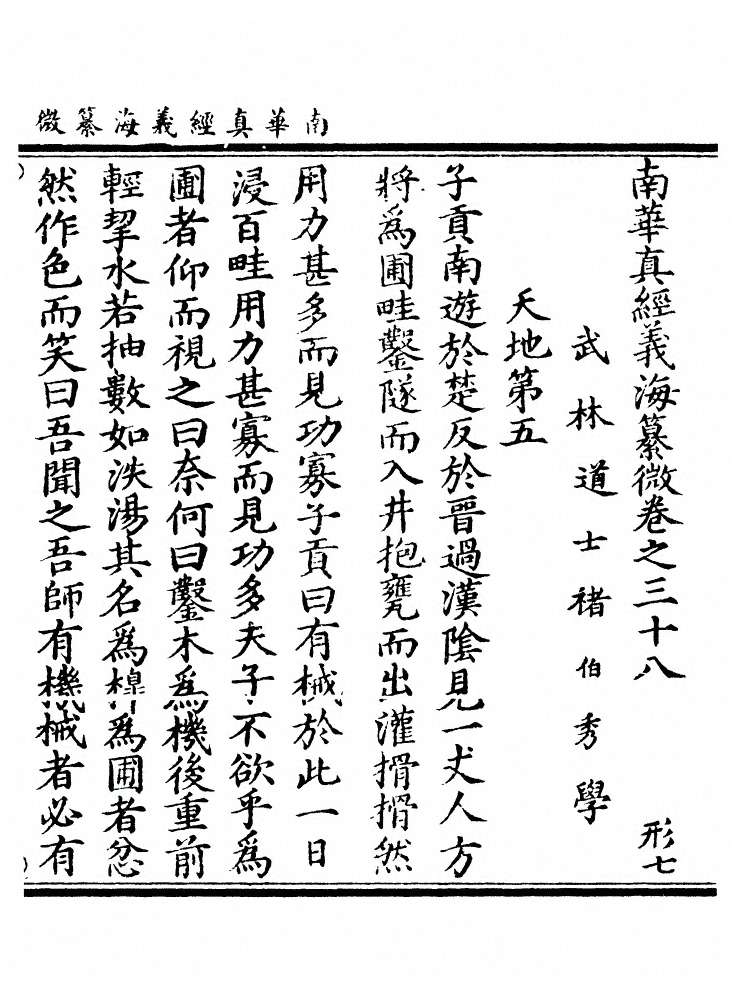 南華真經義海纂微
南華真經義海纂微卷之三十八 形七
武林道士褚伯秀學
天地第五
子貢南遊於楚反於晉過漢陰見一丈人方
將爲圃畦鑿隧而入井抱甕而出灌搰搰然
用力甚多而見功寡子貢曰有械於此一日
浸百畦用力甚寡而見功多夫子不欲乎爲
圃者仰而視之曰奈何曰鑿木爲機後重前
輕挈水若抽數如泆湯其名爲槹爲圃者忿
然作色而笑曰吾聞之吾師有機械者必有